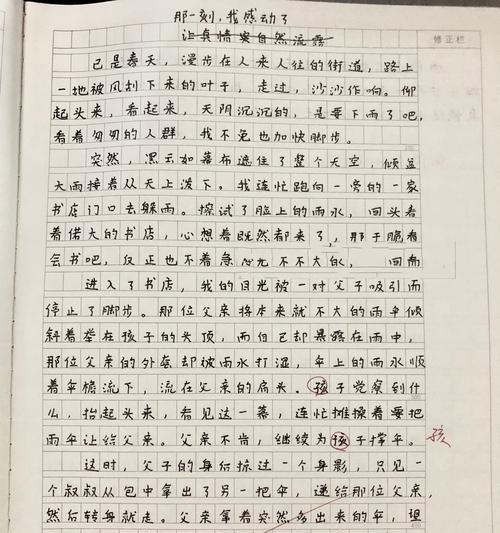 那一刻，我感动了
让真情实自然流露
修正栏
已是春天，漫步在人来人往的街道，路上
一地被风刮下来的叶子，走过，沙沙作响。仰
起头来，看起来，天阴沉沉的，是要下雨了吧，
看着匆匆的人群，我不免也加快脚步。
突然，黑云如幕布遮住了整个天空，倾盆
大雨接着从天上泼下。我连忙跑向一旁的一家
书店门口去躲雨。擦试了脸上的雨水，回头看
着偌大的书店，心想着既然都来了，那干脆看
会书吧，反正也不着急
进入了书店，我的目光被一对父子吸引而
停止了脚步。那位父亲将本来就不大的雨伞倾
斜着举在孩子的头顶，而自己却暴露在雨中，
那位父亲的外套却被雨水打湿，伞上的雨水顺
着伞檐流下，流在父亲的肩头。孩子觉察到什
么，抬起头来，看见这一幕，连忙摊摸着要把
雨伞让给父亲。父亲不肯，继续为孩子撑伞。
孩
这时，父子的身后掠过一个身影，只见一
个叔叔从包中拿出了另一把伞，递给那位父亲，
然后转身就走。父亲拿着突然多出来的伞，望